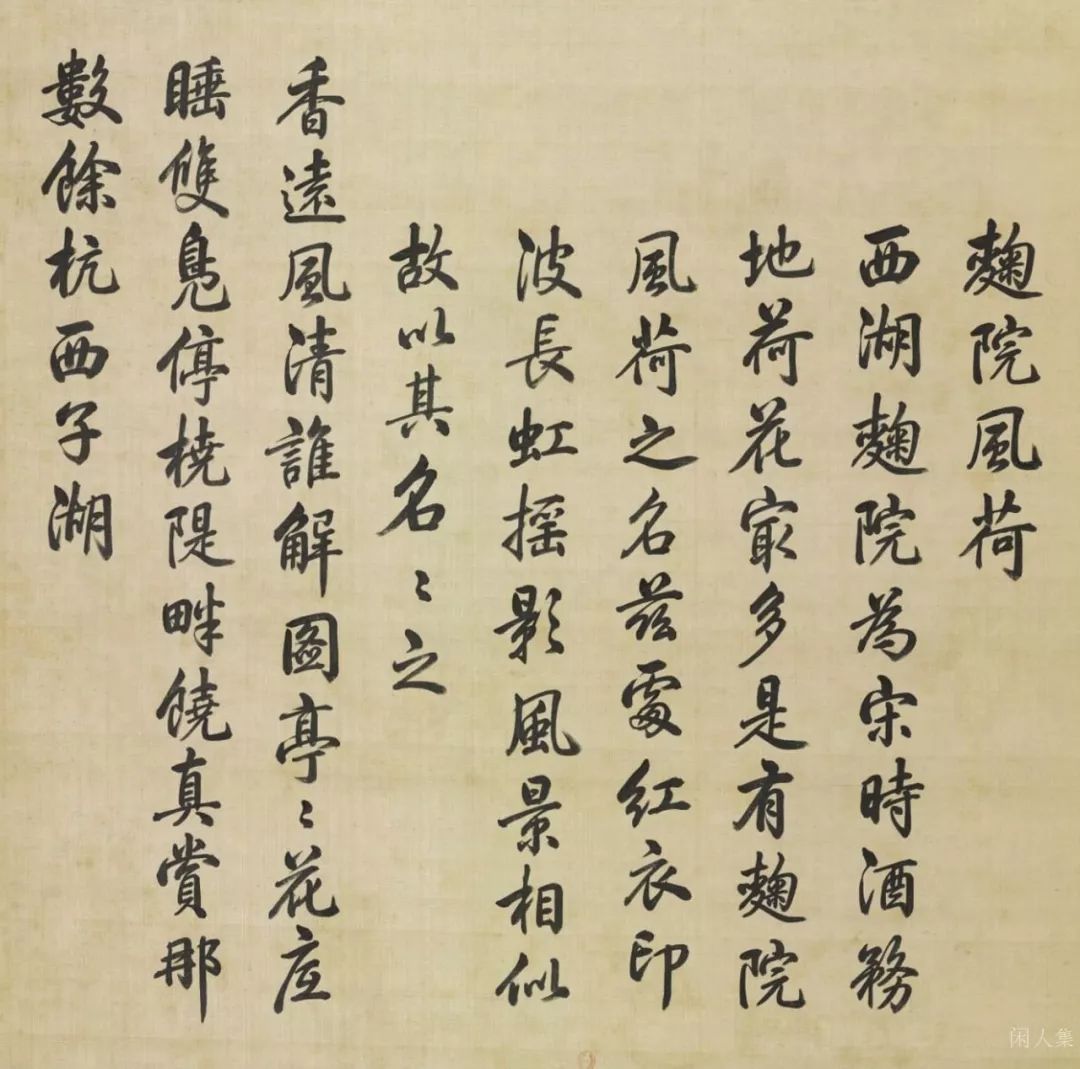 麴院風荷
西湖麴院為宋時酒務
地荷花最多是有麴院
風荷之名茲處紅衣印
波長虹揺影風景相似
故以其名〻之
香遠風清誰解圖亭〻花底
睡雙鳧停橈隄畔饒真賞那
數餘杭西子湖
闲人集